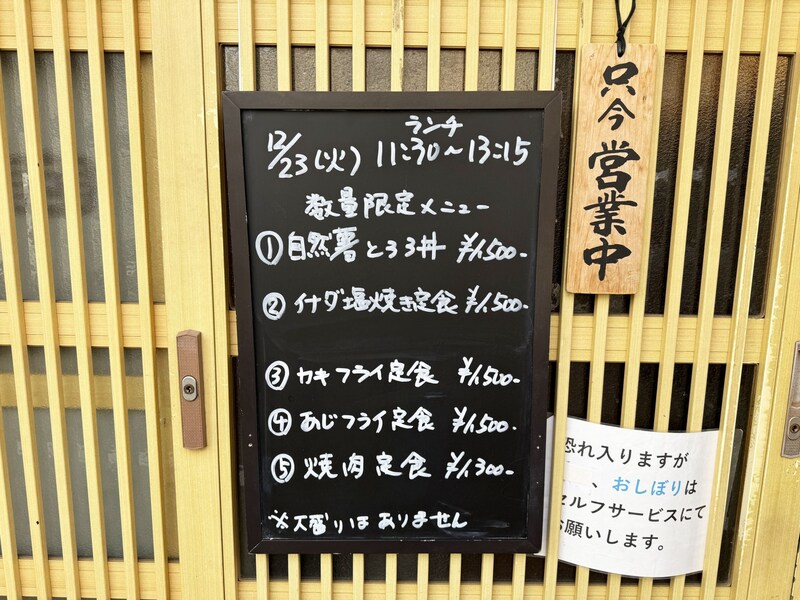 ランチ
12/23(火) 11:30〜13:15
数量限定メニュー
①自然薯とろろ丼 ¥1,500-
②イナダ塩焼き定食 ¥1,500-
③カキフライ定食 ¥1,500-
④あじフライ定食 ¥1,500-
⑤焼肉定食 ¥1,300-
※大盛りはありません
只今営業中
恐れ入りますが
、おしぼりは
セルフサービスにて
お願いします。